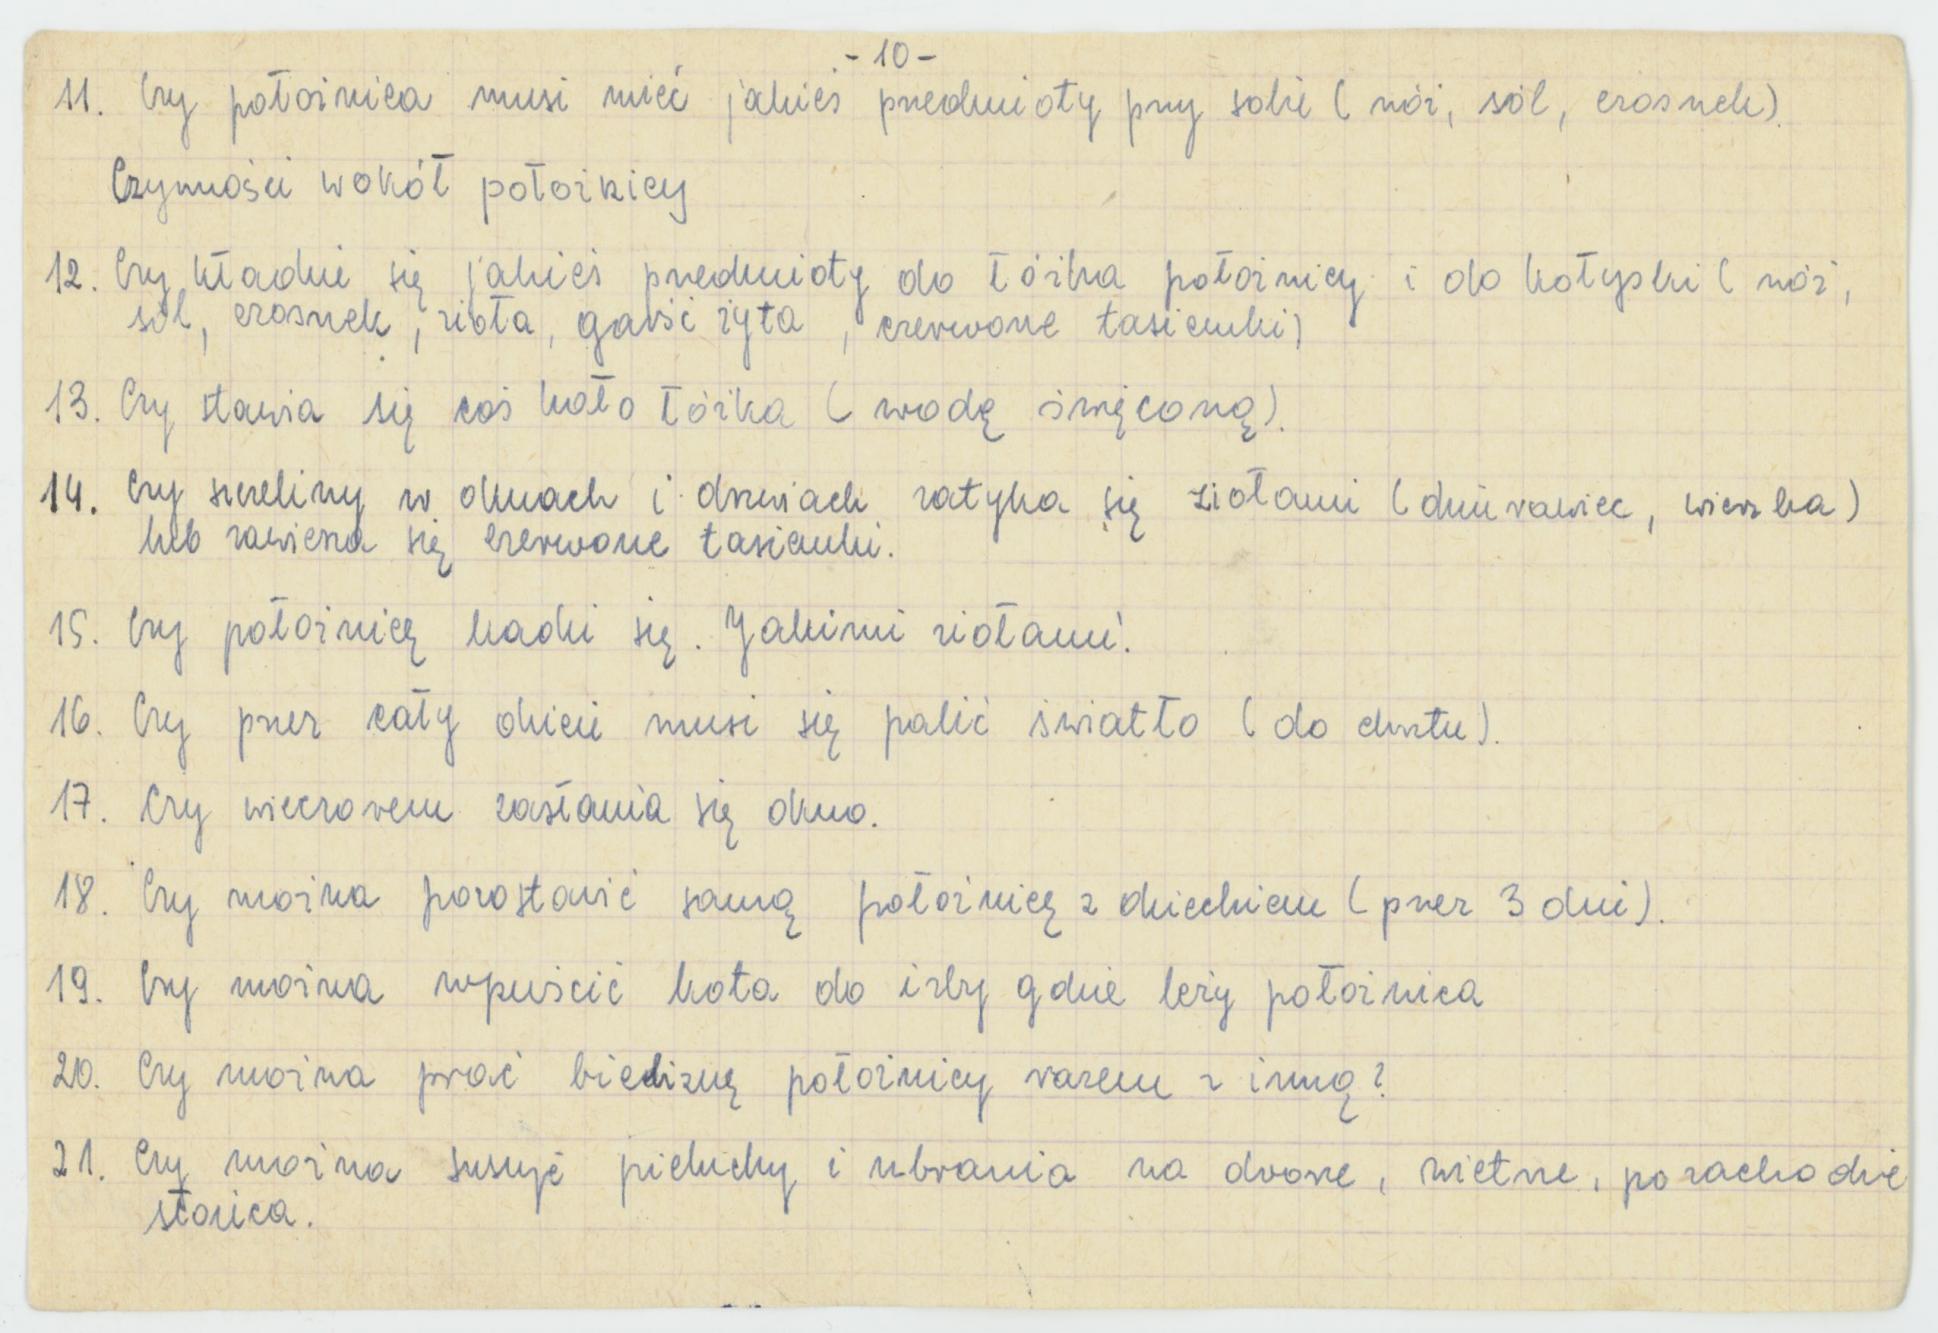 - 10 -
11. Czy położnica musi mieć jakieś przedmioty przy sobie ( nóż, sól, czosnek).
Czynności wokół położnicy
12. Czy kładzie się jakieś przedmioty do łóżka położnicy i do kołyski ( nóż,
sól, czosnek, zioła, garść żyta, czerwone tasiemki)
13. Czy stawia się coś koło łóżka ( wodę święconą).
14. Czy szczeliny w oknach i drzwiach zatyka się ziołami ( dziurawiec, wierzba)
lub zawiesza się czerwone tasiemki.
15. Czy położnicę kadzi się. Jakimi ziołami.
16. Czy przez cały dzień musi się palić światło ( do chrztu).
17. Czy wieczorem zasłania się okno.
18. Czy można pozostawić samą położnicę z dzieckiem ( przez 3 dni).
19. Czy można wpuścić kota do izby gdzie leży położnica
20. Czy można prać bieliznę położnicy razem z inną?
21. Czy można suszyć pieluchy i ubrania na dworze, wietrze, po zachodzie
słońca.